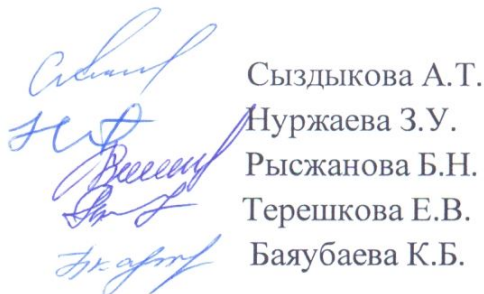 Сыздыкова А.Т.
Нуржаева З.У.
Рысжанова Б.Н.
Терешкова Е.В.
Баяубаева К.Б.